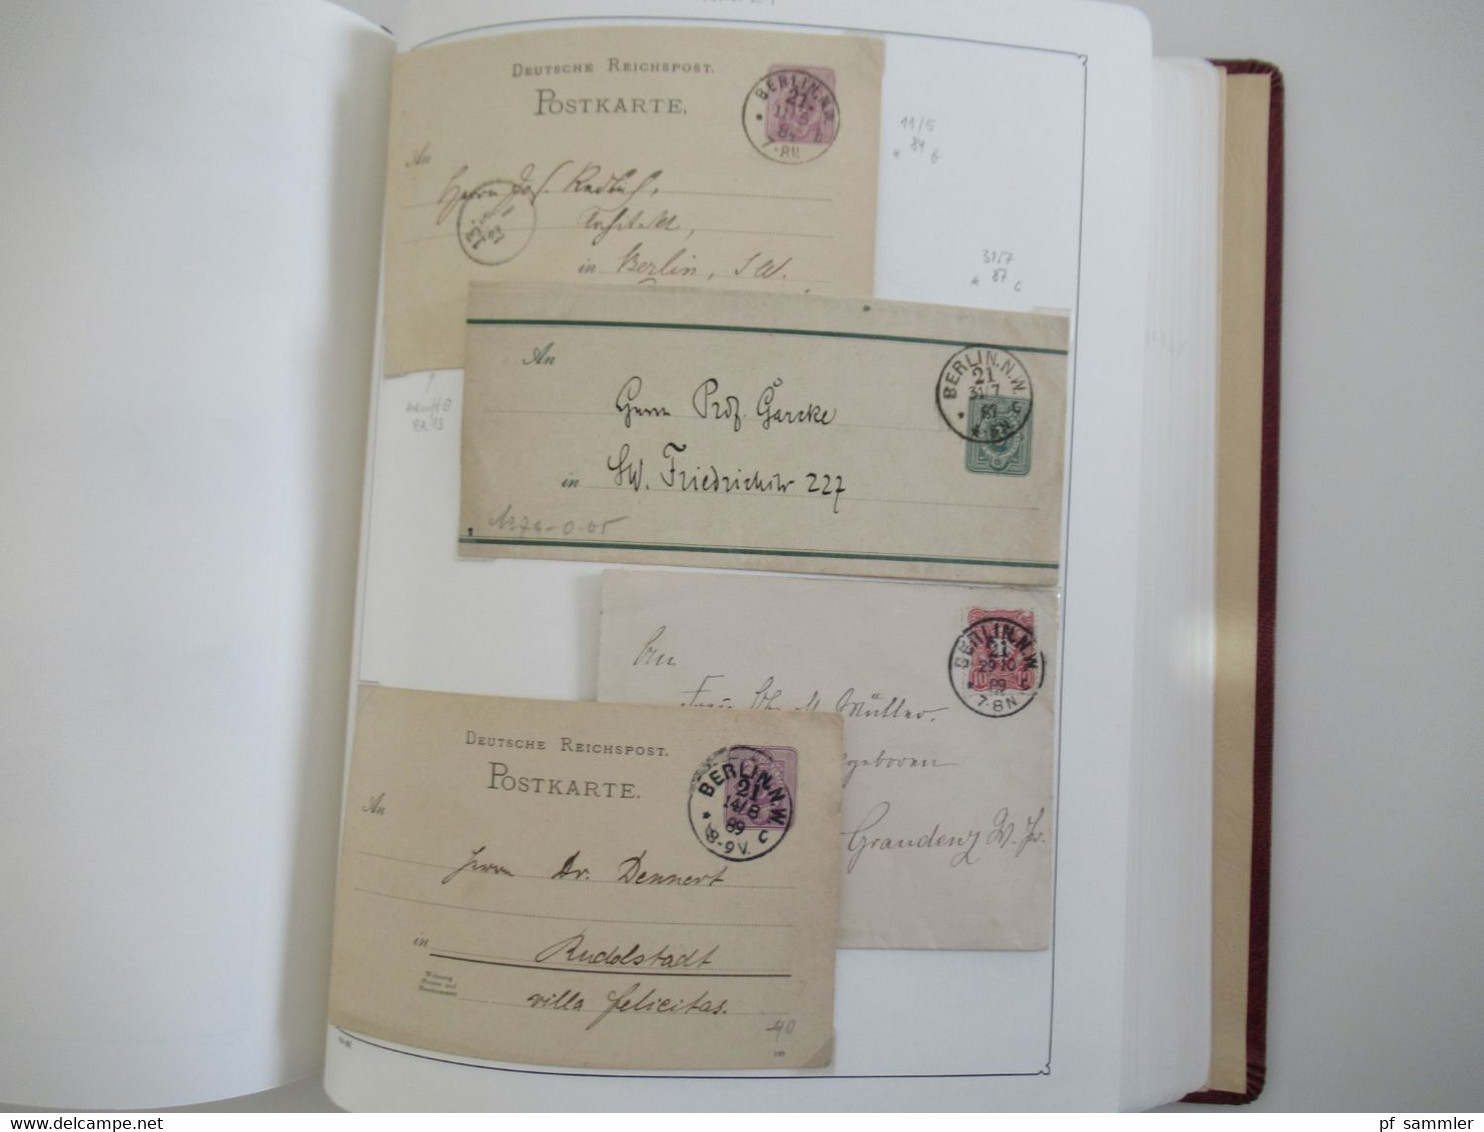 DEUTSCHE REICHSPOST.
POSTKARTE.
BERLIN.N.W.
21.
11/5
84 b
7-8N
An
Herrn Jos.
in Berlin, SW.
11/5
* 84 b
31/7
* 87 c
An
BERLIN.N.W.
21
31/7
87 c
Herrn Prof. Garcke
in SW. Friedrichstr 227
BERLIN.N.W.
21
29 10
89 c
7-8N
10 10
An
Frau
M Müller.
geboren
Graudenz W. Pr.
DEUTSCHE REICHSPOST.
POSTKARTE.
BERLIN.N.W.
21
14/8
89 c
8-9V.
An
Herrn Dr. Dennert
in Rudolstadt
Wohnung
(Strasse und
Hausnummer)
villa felicitas.
pf sammler